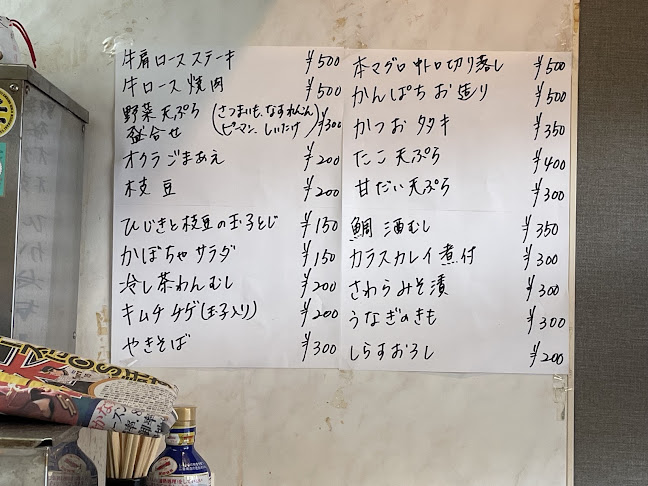 牛肩ロースステーキ ¥500
牛ロース焼肉 ¥500
野菜天ぷら (さつまいも、なす、れんこん
盛合せ ピーマン、しいたけ) ¥300
オクラごまあえ ¥200
枝豆 ¥200
ひじきと枝豆の玉子とじ ¥150
かぼちゃサラダ ¥150
冷し茶わんむし ¥200
キムチチゲ(玉子入り) ¥200
やきそば ¥300
本マグロ中トロ切り落し ¥500
かんぱちお造り ¥500
かつおタタキ ¥350
たこ天ぷら ¥400
甘だい天ぷら ¥300
鯛酒むし ¥350
カラスカレイ煮付 ¥300
さわらみそ漬 ¥300
うなぎのきも ¥300
しらすおろし ¥200